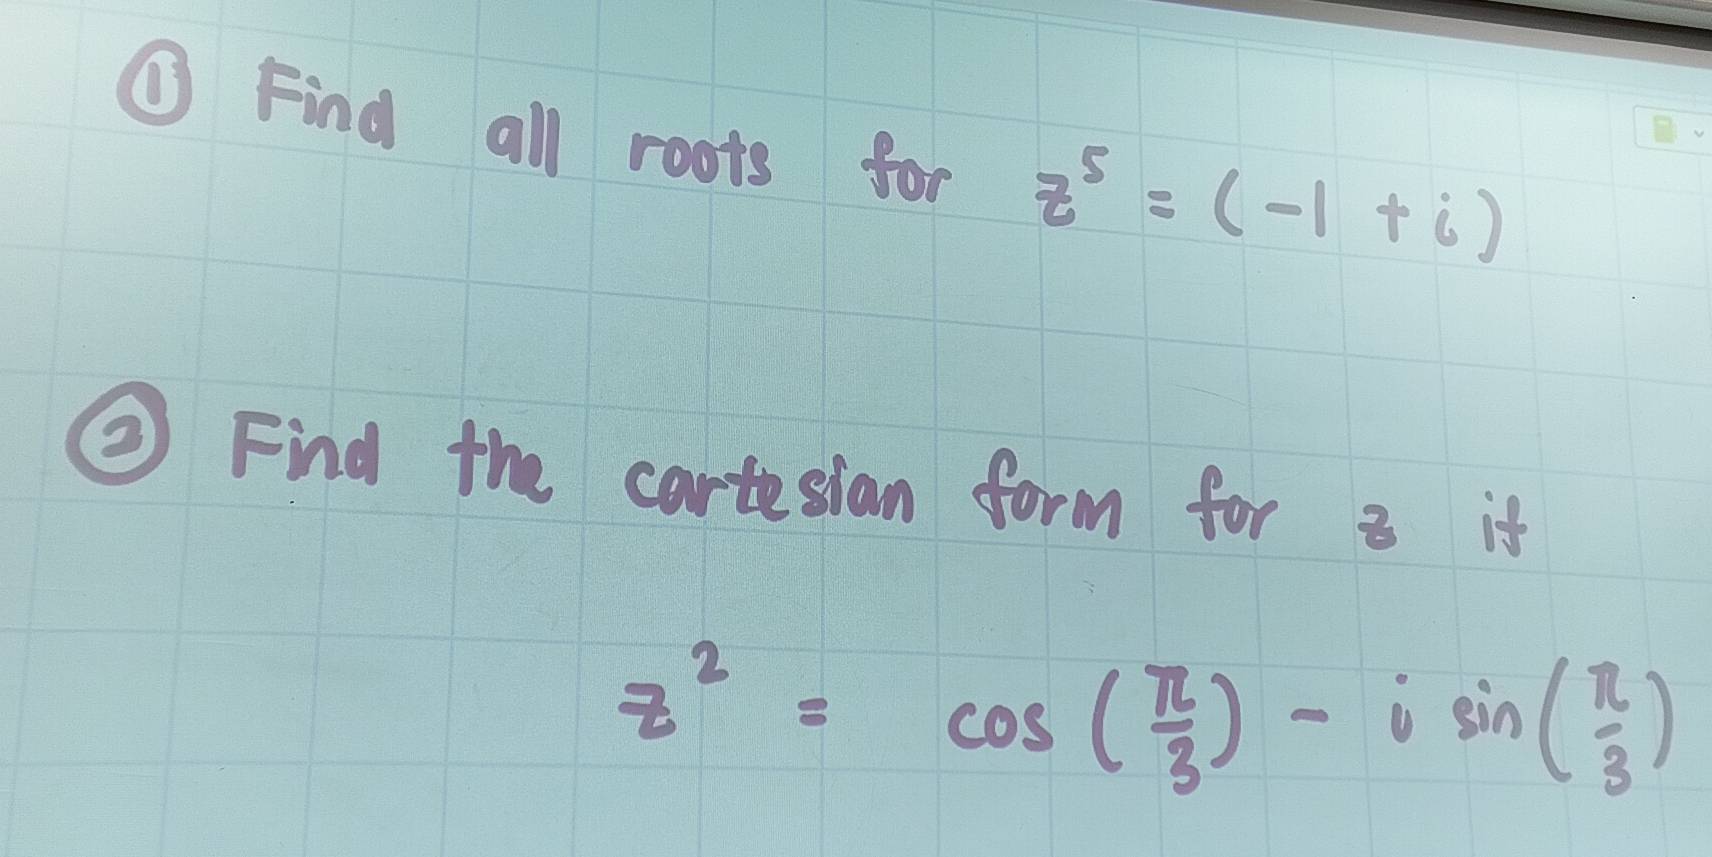 ① Find all roots for z⁵ = (-1 + i)
② Find the cartesian form for z if
z² = cos (π/3) - i sin (π/3)